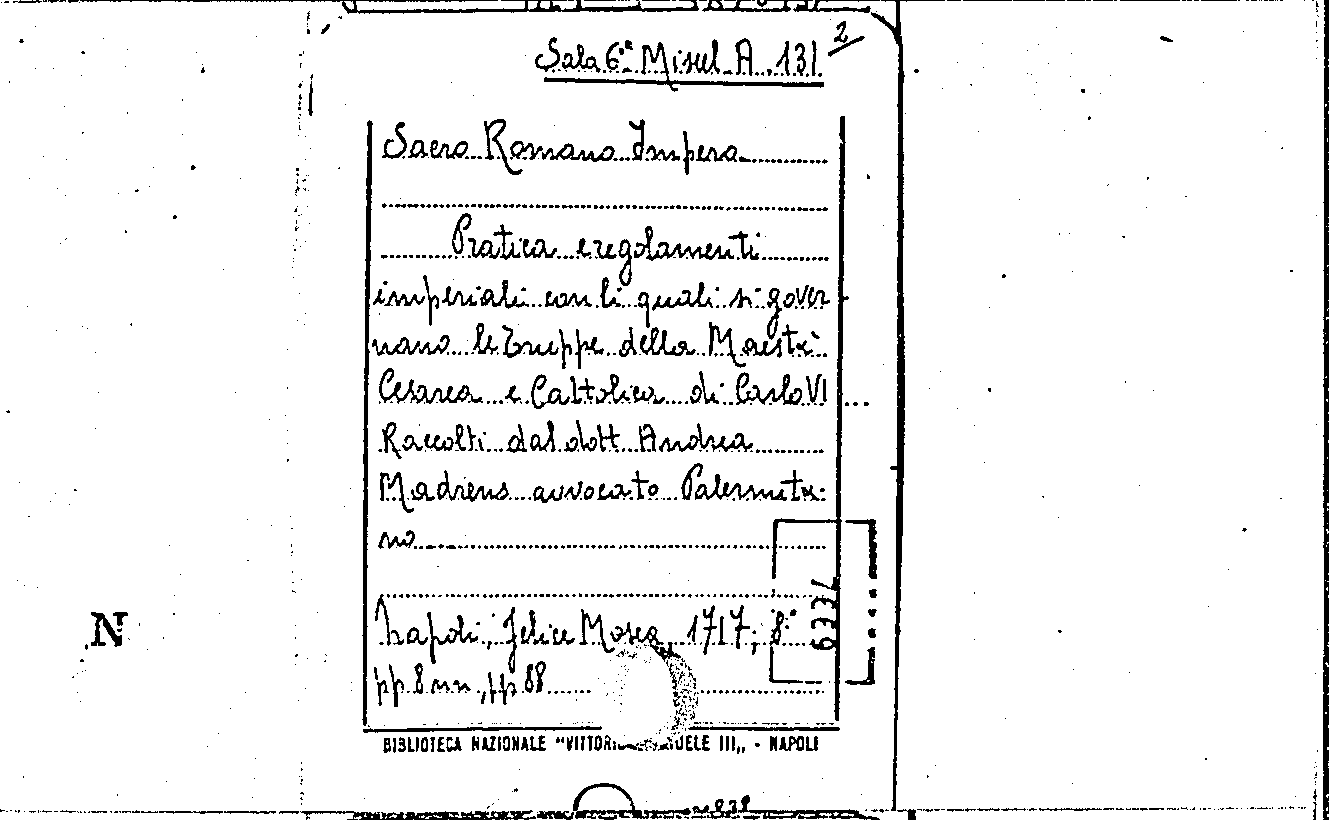 2
Sala 6ª Miscel. A. 131.
Sacro Romano Impero
Pratica e regolamenti
imperiali con li quali si gover
nano le Truppe della Maestà
Cesarea e Cattolica di Carlo VI
Raccolti dal dott Andrea
Madrens avvocato Palermita-
no
Napoli, Felice Mosca, 1717; 8°
pp 8 nn, pp 88
6337
BIBLIOTECA NAZIONALE "VITTORIO UELE III„ - NAPOLI
N